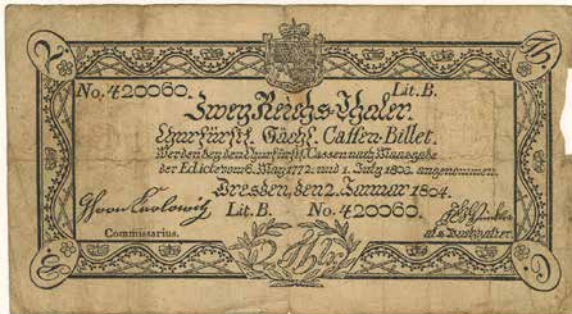 No. 420060. Lit. B.
Zwey Reichs-Thaler.
Churfürstl. Sächß. Cassen-Billet.
Werden bey den Churfürstl. Cassen nach Maasgabe
der Edicte vom 6. May 1772. und 1. July 1803. angenommen.
Dresden, den 2. Januar 1804.
Lit. B. No. 420060.
Commissarius. als Buchhalter.
2 Rthlr